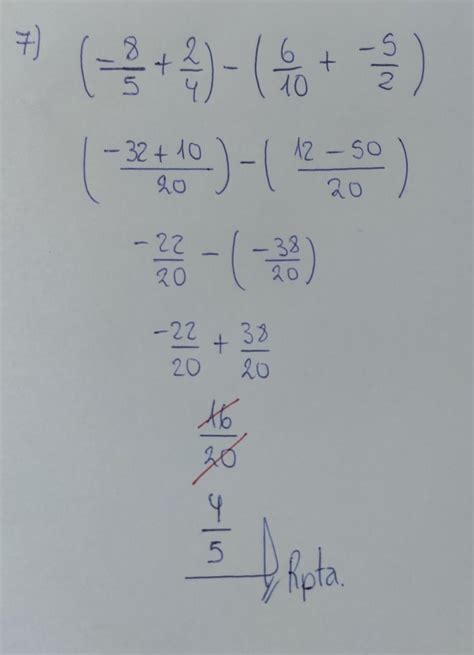 7) (-8/5 + 2/4) - (6/10 + -5/2)
(-32+10/20) - (12-50/20)
-22/20 - (-38/20)
-22/20 + 38/20
16/20
4/5 Rpta.